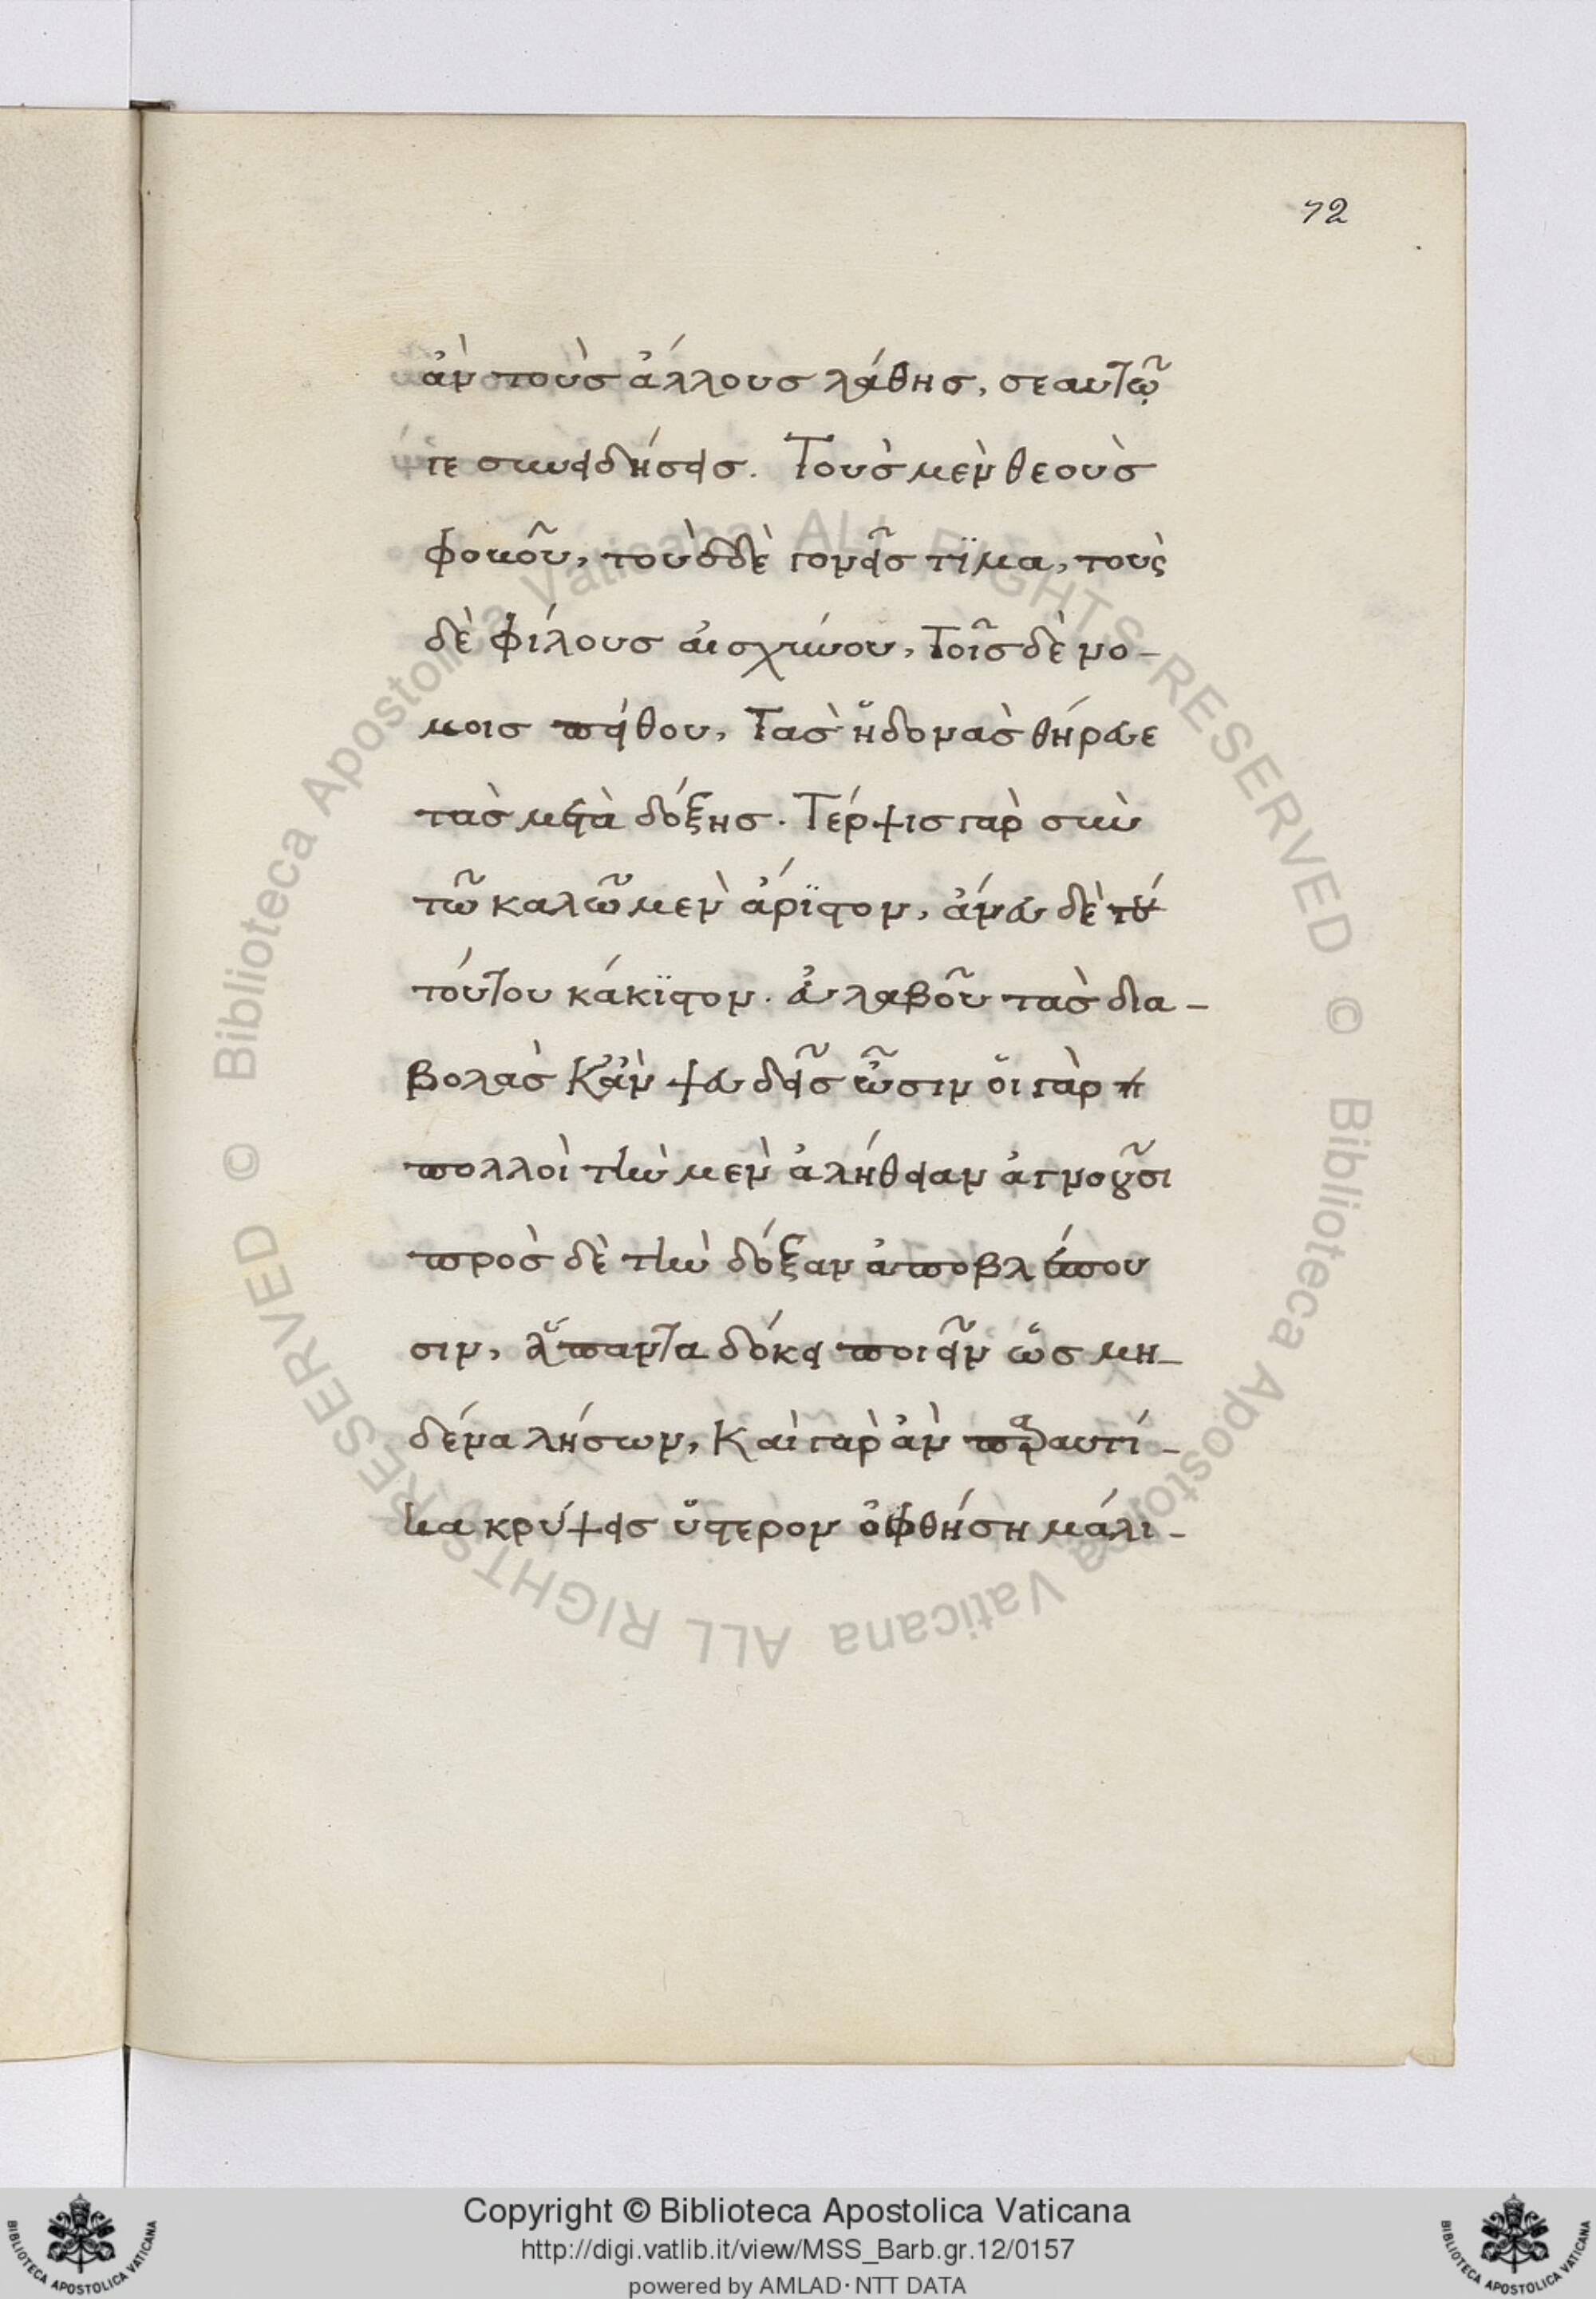 72
ἀν τοὺς ἄλλους λάθης, σεαυτῶ
γε συνειδήσεις. Τοὺς μὲν θεοὺς
φοβοῦ, τοὺς δὲ γονεῖς τΐμα, τοὺς
δὲ φίλους αἰσχύνου, Τοῖς δὲ νό-
μοις πείθου, Τὰς ἥδονὰς θήρευε
τὰς μετὰ δόξης. Τέρψις γὰρ σὺν
τῶ καλῶ μὲν ἄρϊστον, ἄνευ δὲ τού
τούτου κάκϊστον. εὐλαβοῦ τὰς δια-
βολὰς Κἂν ψευδεῖς ὦσιν οἵ γὰρ π
πολλοὶ τὴν μὲν ἀλήθειαν ἀγνοοῦσι
πρὸς δὲ τὴν δόξαν ἀποβλέπου
σιν, ἅπαντα δόκει ποιεῖν ὥς μη-
δένα λήσων, Καὶ γὰρ ἂν παραυτί-
κα κρύψεις ὕστερον ὀφθήση μάλι-
© Biblioteca Apostolica Vaticana ALL RIGHTS RESERVED
© Biblioteca Apostolica Vaticana ALL RIGHTS RESERVED
Copyright © Biblioteca Apostolica Vaticana
http://digi.vatlib.it/view/MSS_Barb.gr.12/0157
powered by AMLAD·NTT DATA
BIBLIOTECA APOSTOLICA VATICANA
BIBLIOTECA APOSTOLICA VATICANA